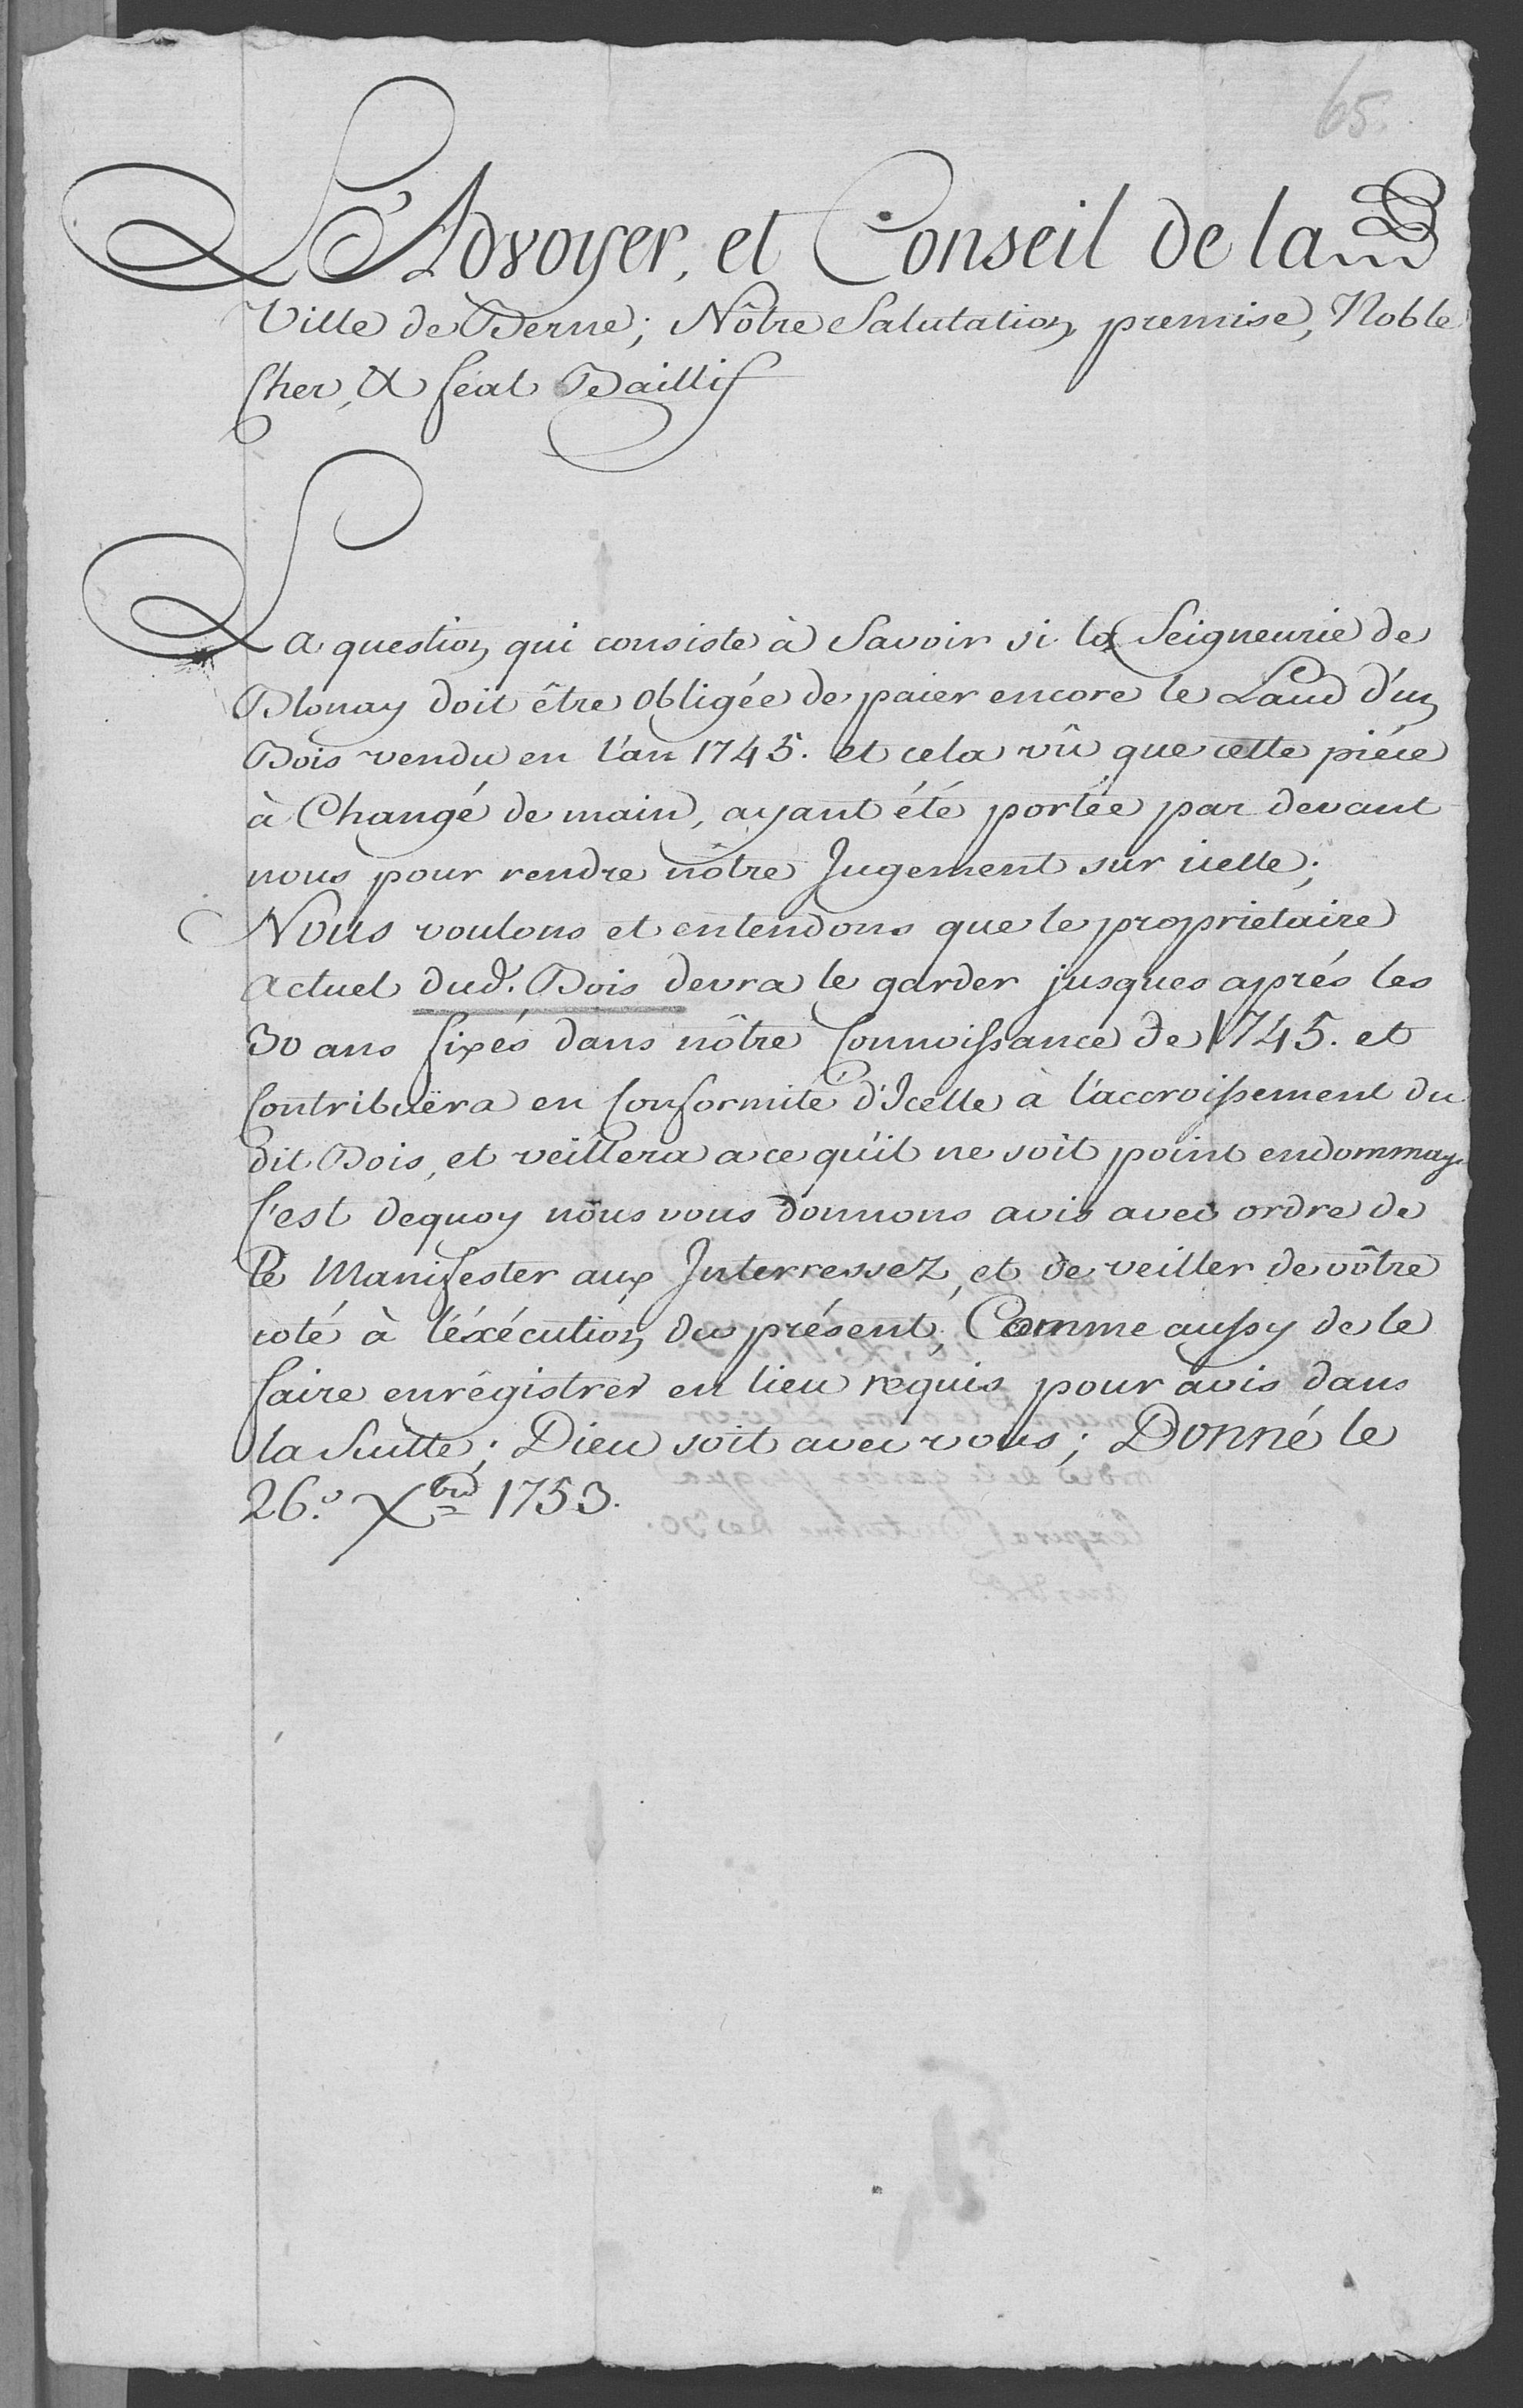 65.
L'Advoyer, et Conseil de la
Ville de Berne; Nôtre Salutation premise, Noble
Cher, & feal Baillif
La question qui consiste à Savoir si la Seigneurie de
Blonay doit être Obligée de paier encore le Laud d'un
Bois vendu en l'an 1745. et cela vû que cette piéce
à Changé de main, ayant été portée par devant
nous pour rendre nôtre Jugement sur icelle;
Nous voulons et entendons que le proprietaire
actuel dud.t Bois devra le garder jusques aprés les
30 ans fixés dans nôtre Connoissance de 1745. et
Contribuëra en Conformité d'Icelle à l'accroissement du
dit Bois, et veillera a ce qu'il ne soit point endommagé
C'est dequoy nous vous donnons avis avec ordre de
le Manifester aux Interressez, et de veiller de vôtre
coté à l'éxécution du présent, Comme aussy de le
faire enrégistrer en lieu requis pour avis dans
la Suitte; Dieu soit avec vous; Donné le
26.e Xbre 1753.